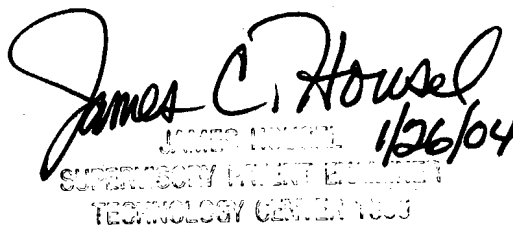 James C. Housel
1/26/04
JAMES HOUSEL
SUPERVISORY PATENT EXAMINER
TECHNOLOGY CENTER 1600